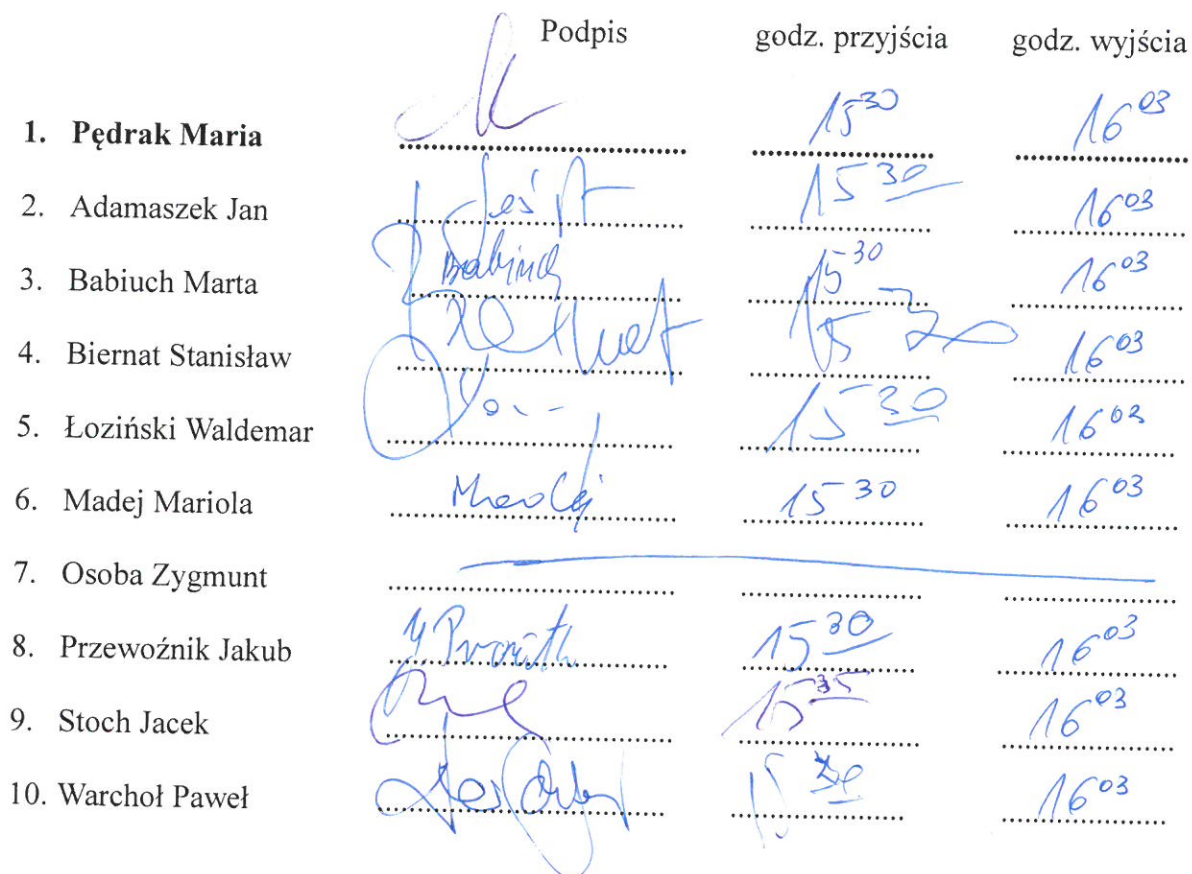 Podpis godz. przyjścia godz. wyjścia
1. Pędrak Maria 15 30 16 03
2. Adamaszek Jan 15 30 16 03
3. Babiuch Marta Babiuch 15 30 16 03
4. Biernat Stanisław 15 30 16 03
5. Łoziński Waldemar 15 30 16 03
6. Madej Mariola Madej 15 30 16 03
7. Osoba Zygmunt
8. Przewoźnik Jakub 15 30 16 03
9. Stoch Jacek 15 35 16 03
10. Warchoł Paweł 15 30 16 03